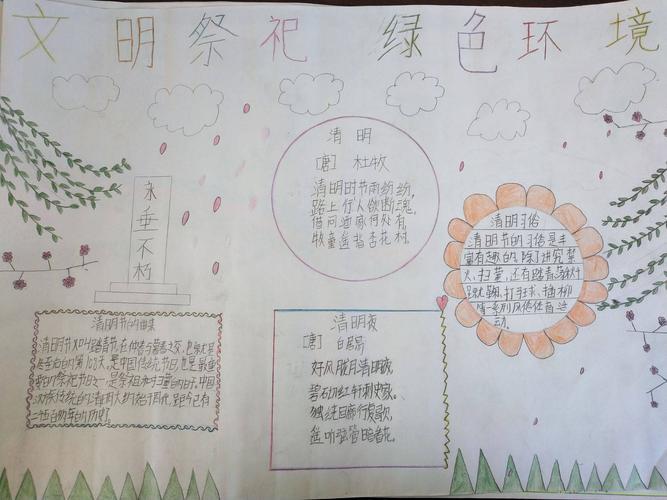 文明祭祀 绿色环境
清明
[唐] 杜牧
清明时节雨纷纷,
路上行人欲断魂,
借问酒家何处有,
牧童遥指杏花村.
永垂不朽
清明习俗
清明节的习俗是丰
富有趣的,除了讲究禁
火,扫墓,还有踏青荡秋千
蹴鞠,打手球,插柳
等一系列风俗体育活
动.
清明节的由来
清明节又叫踏青节,在仲春与暮春之交,也就是
冬至后的第108天,是中国传统节日,也是最重
要的祭祀节日之一,是祭祖和扫墓的日子,中国
汉族传统的清明节大约始于周代,距今已有
二千五百多年的历史,
清明夜
[唐] 白居易
好风胧月清明夜,
碧砌红轩刺史家.
独绕回廊行复歇,
遥听弦管暗看花.